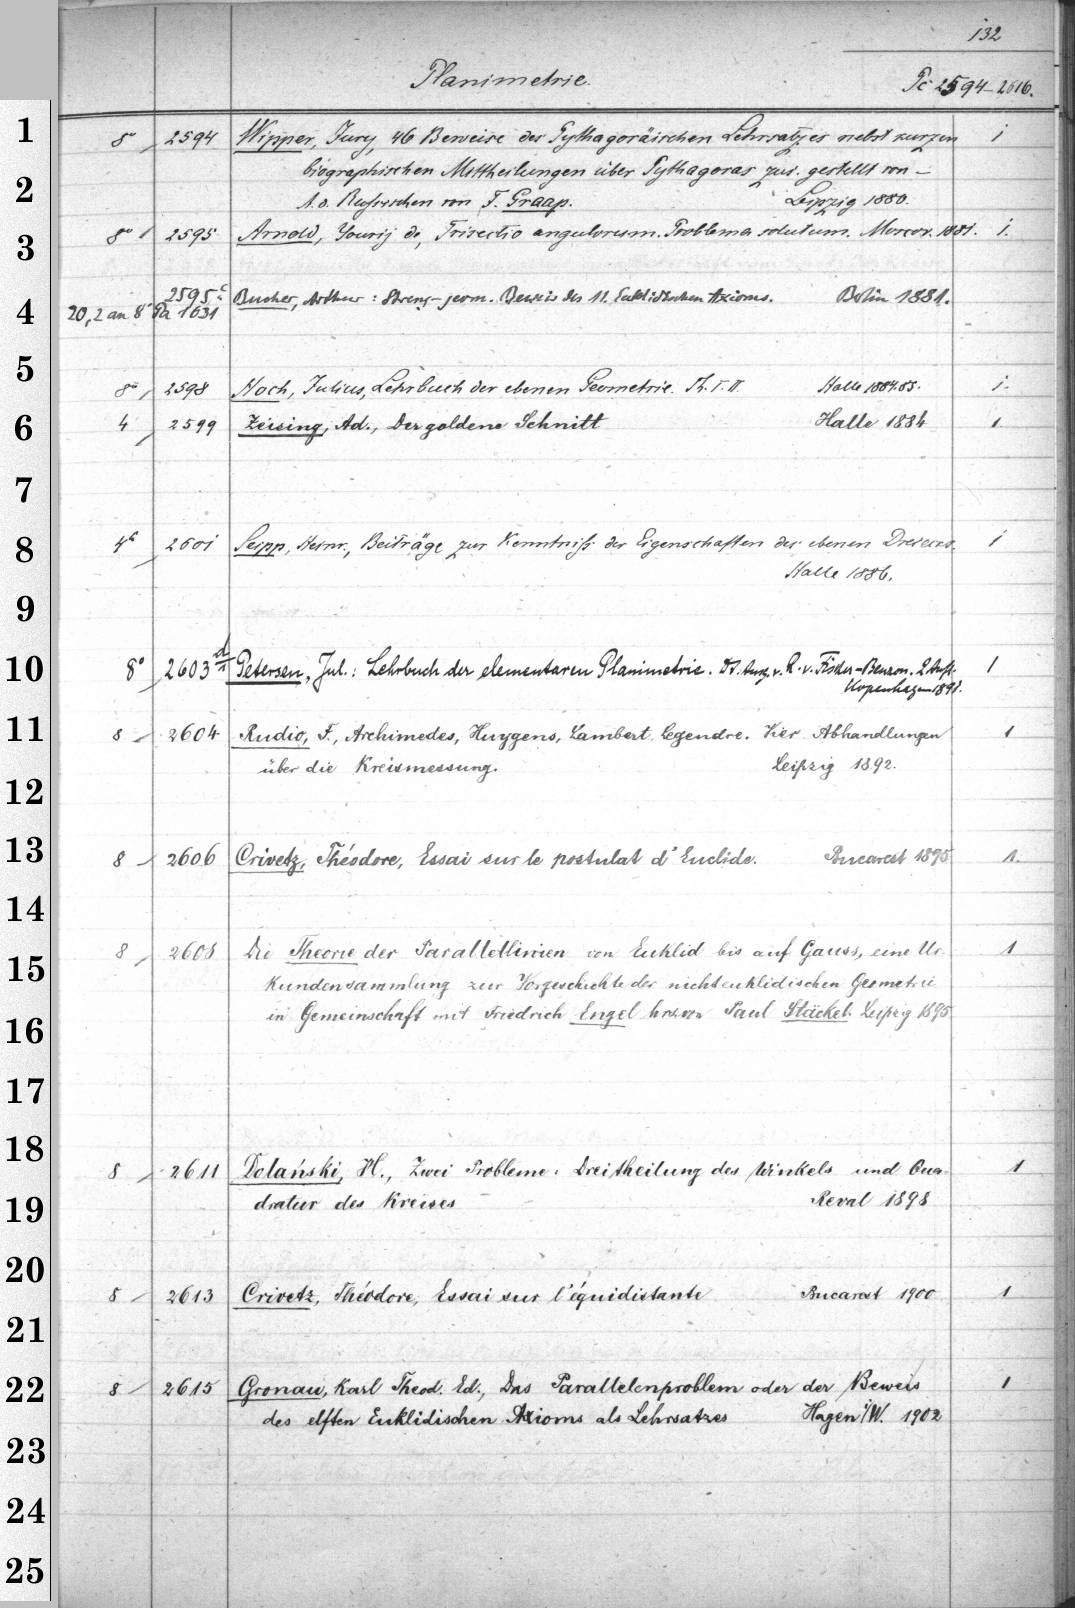 132
Planimetrie.
Pc 2594-2616.
1 8 2594 Wipper, Jury, 46 Beweise des Pythagoräischen Lehrsatzes nebst kurzen 1
biographischen Mittheilungen über Pythagoras zus. gestellt von –
2 A. d. Russischen von F. Graap. Leipzig 1880.
3 8° 1 2595 Arnold, Yourij de, Trisectio angulorum. Problema solutum. Moscov. 1881. 1.
2595c Bucher, Arthur: Streng-geom. Beweis des 11. Euklidischen Axioms. Berlin 1881.
4 20,2 an 8° Pa 1631
5 8° 2598 Hoch, Julius, Lehrbuch der ebenen Geometrie. Th. I. II. Halle 1884.85. 1.
6 4 2599 Zeising, Ad., Der goldene Schnitt Halle 1884 1
7
8 4° 2601 Seipp, Heinr., Beiträge zur Kenntniß der Eigenschaften des ebenen Dreiecks. 1
Halle 1886.
9
10 8° 2603 d/1 Petersen, Jul.: Lehrbuch der elementaren Planimetrie. Dt. Ausg. v. R. v. Fischer-Benzon. 2. Aufl. 1
Kopenhagen 1891.
11 8 2604 Rudio, F., Archimedes, Huygens, Lambert, Legendre. Vier Abhandlungen 1
über die Kreismessung. Leipzig 1892.
12
13 8 2606 Crivetz, Théodore, Essai sur le postulat d'Euclide. Bucarest 1895 1.
14
15 8 2608 Die Theorie der Parallellinien von Euklid bis auf Gauss, eine Ur- 1
kundensammlung zur Vorgeschichte der nichteuklidischen Geometrie
16 in Gemeinschaft mit Friedrich Engel hrs. von Paul Stäckel. Leipzig 1895
17
18 8 2611 Dolański, H., Zwei Probleme: Dreitheilung des Winkels und Qua- 1
19 dratur des Kreises Reval 1898
20 8 2613 Crivetz, Théodore, Essai sur l'équidistante Bucarest 1900 1
21
22 8 2615 Gronau, Karl Theod. Ed., Das Parallelenproblem oder der Beweis 1
des elften Euklidischen Axioms als Lehrsatzes Hagen i/W. 1902
23
24
25